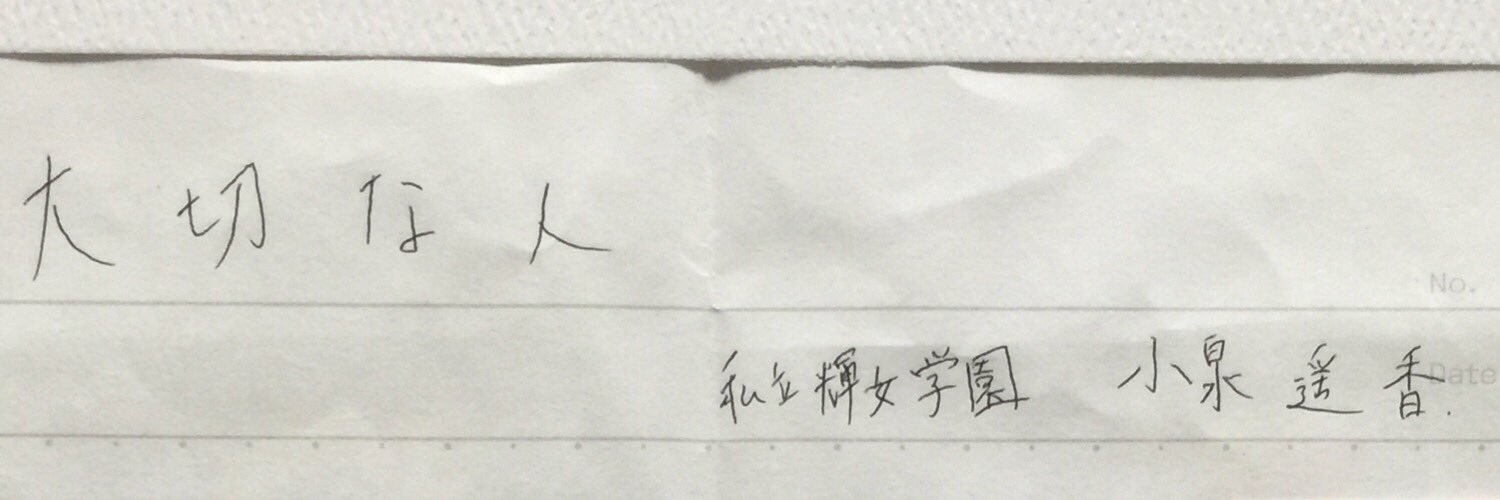 大切な人
No.
私立輝女学園 小泉遥香.
Date